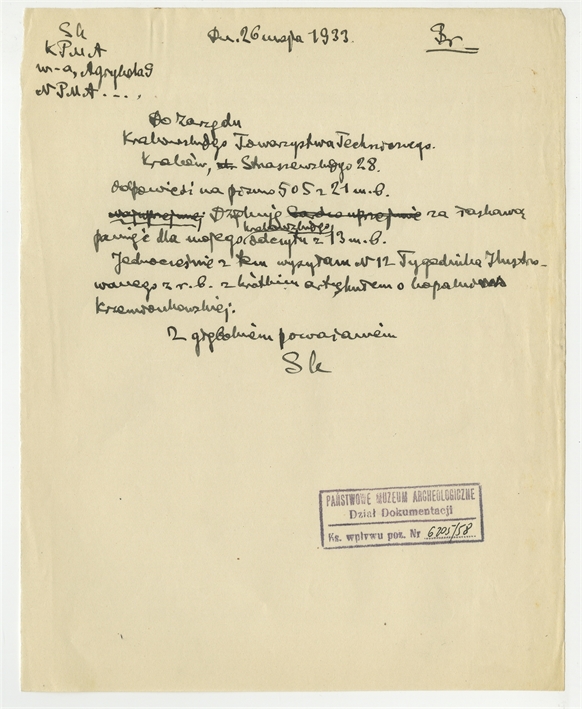 Sk
KPMA
w-a, Agrykola
NPMA ....
Dn. 26 marca 1933.
Br
Do Zarządu
Krakowskiego Towarzystwa Technicznego.
Kraków, Straszewskiego 28.
odpowiedź na pismo 505 z 21 m.b.
Dziękuję za łaskawą
krakowskiego
pamięć dla mojego odczytu z 13 m.b.
Jednocześnie z tem wysyłam N 12 Tygodnika Ilustro-
wanego z r.b. z krótkim artykułem o kopalni
Krzemionkowskiej.
Z głębokiem poważaniem
Sk
PAŃSTWOWE MUZEUM ARCHEOLOGICZNE
Dział Dokumentacji
Ks. wpływu poz. Nr 6205/58